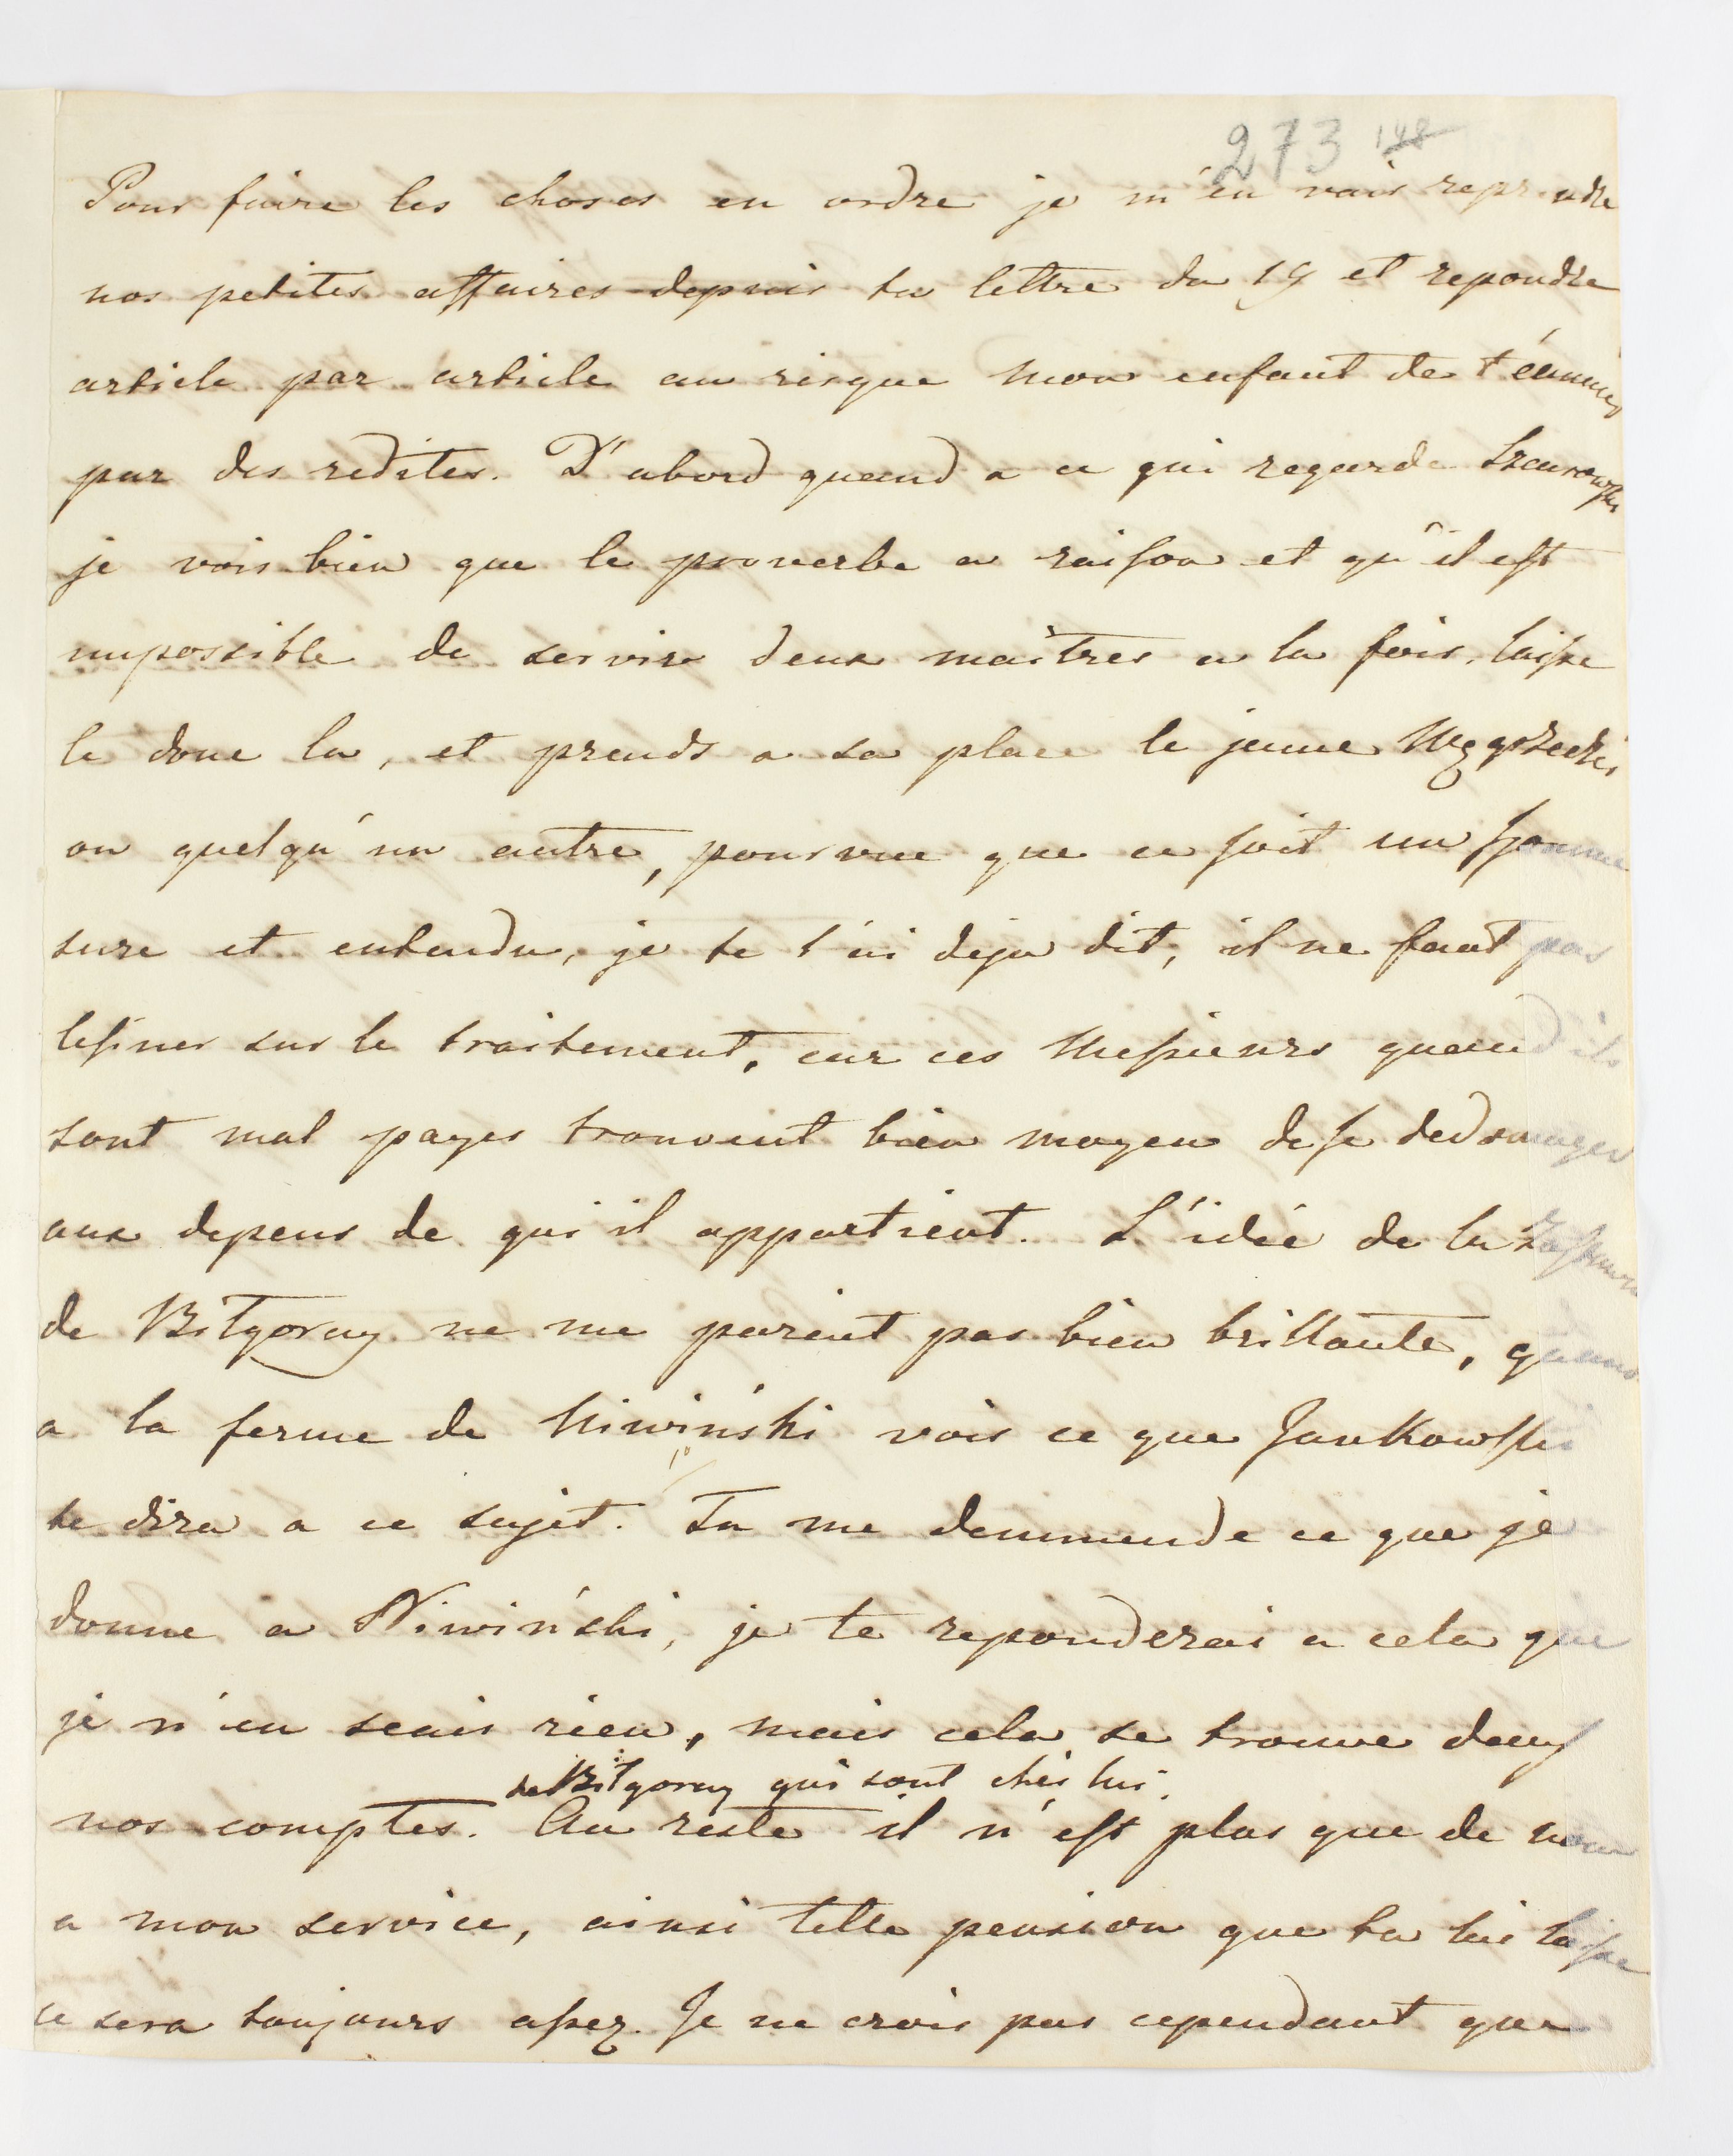 273 148
Pour faire les choses en ordre je m'en vais reprendre
nos petites affaires depuis ta lettre du 19 et repondre
article par article au risque mon enfant de t'ennuier
par des redites. D'abord quand a ce qui regarde
je vois bien que le proverbe a raison et qu'il est
impossible de servire deux maîtres a la fois, laisse
le donc la, et prends a sa place le jeune Węgrzecki
ou quelqu'un autre, pourvue que ce soit un homme
sure et entendu, je te l'ai deja dit, il ne faut pas
lesiner sur le traitement, car ces Messieurs quand ils
sont mal payes trouvent bien moyen de se dedomager
aux depens de qui il appartient. L'idée de la
de Biłgoray ne me parait pas bien brillante, quand
a la ferme de Niwiński vois ce que Jankowski
te dira a ce sujet. Tu me demmende ce que je
donne a Niwiński, je te reponderai a cela que
je n'en scais rien, mais cela se trouve dans
de Biłgoray qui sont chés lui.
nos comptes. Au reste il n'est plus que de nom
a mon service, ainsi telle pension que tu lui laisse
ce sera toujours assez. Je ne crois pas cependant que